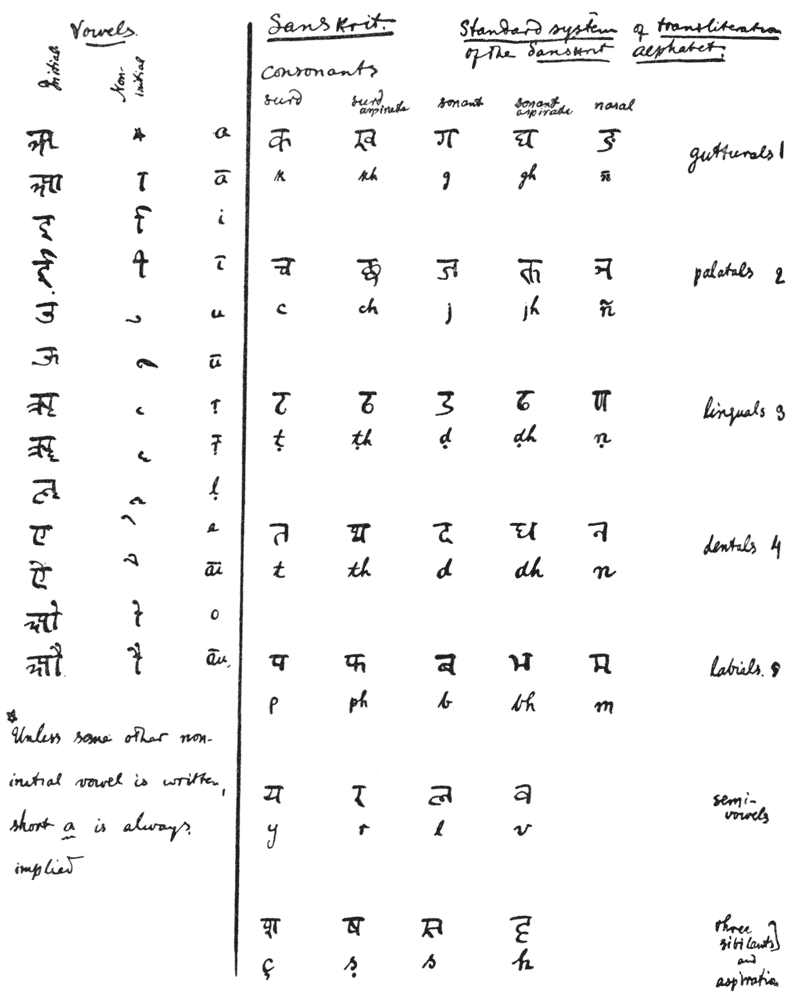 Vowels.
Initial
Non-initial
अ * a
आ ा ā
इ ि i
ई ी ī
उ ु u
ऊ ू ū
ऋ ृ ṛ
ॠ ॄ ṝ
ऌ ॢ ḷ
ए े e
ऐ ै āi
ओ ो o
औ ौ āu.
*
Unless some other non-
initial vowel is written,
short a is always
implied
Sanskrit.
Standard system of transliteration
of the Sanskrit alphabet.
Consonants
surd surd aspirate sonant sonant aspirate nasal
क ख ग घ ङ gutturals 1
k kh g gh n̄
च छ ज झ ञ palatals 2
c ch j jh ñ
ट ठ ड ढ ण linguals 3
ṭ ṭh ḍ ḍh ṇ
त थ द ध न dentals 4
t th d dh n
प फ ब भ म labials. 5
p ph b bh m
य र ल व semi-
vowels
y r l v
श ष स ह three
sibilants
and
aspiration
ç ṣ s h